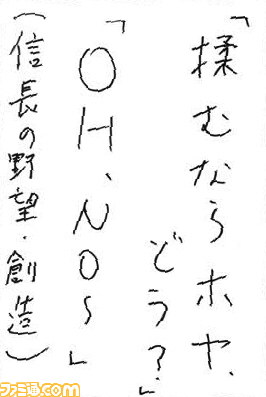 「揉むならホヤ、
どう?」
「OH、NO~」
(信長の野望・創造)
ファミ通.com